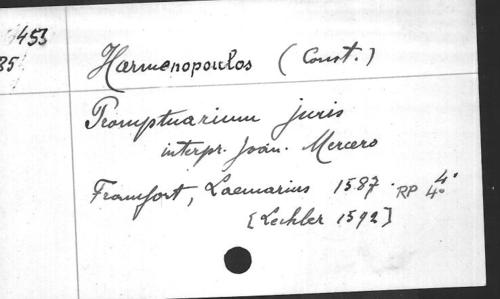 453
85
Harmenopoulos (Const.)
Promptuarium juris
interpr. Joan. Mercero
Francfort, Laemarius 1587. RP 4° 4°
[Lechler 1592]